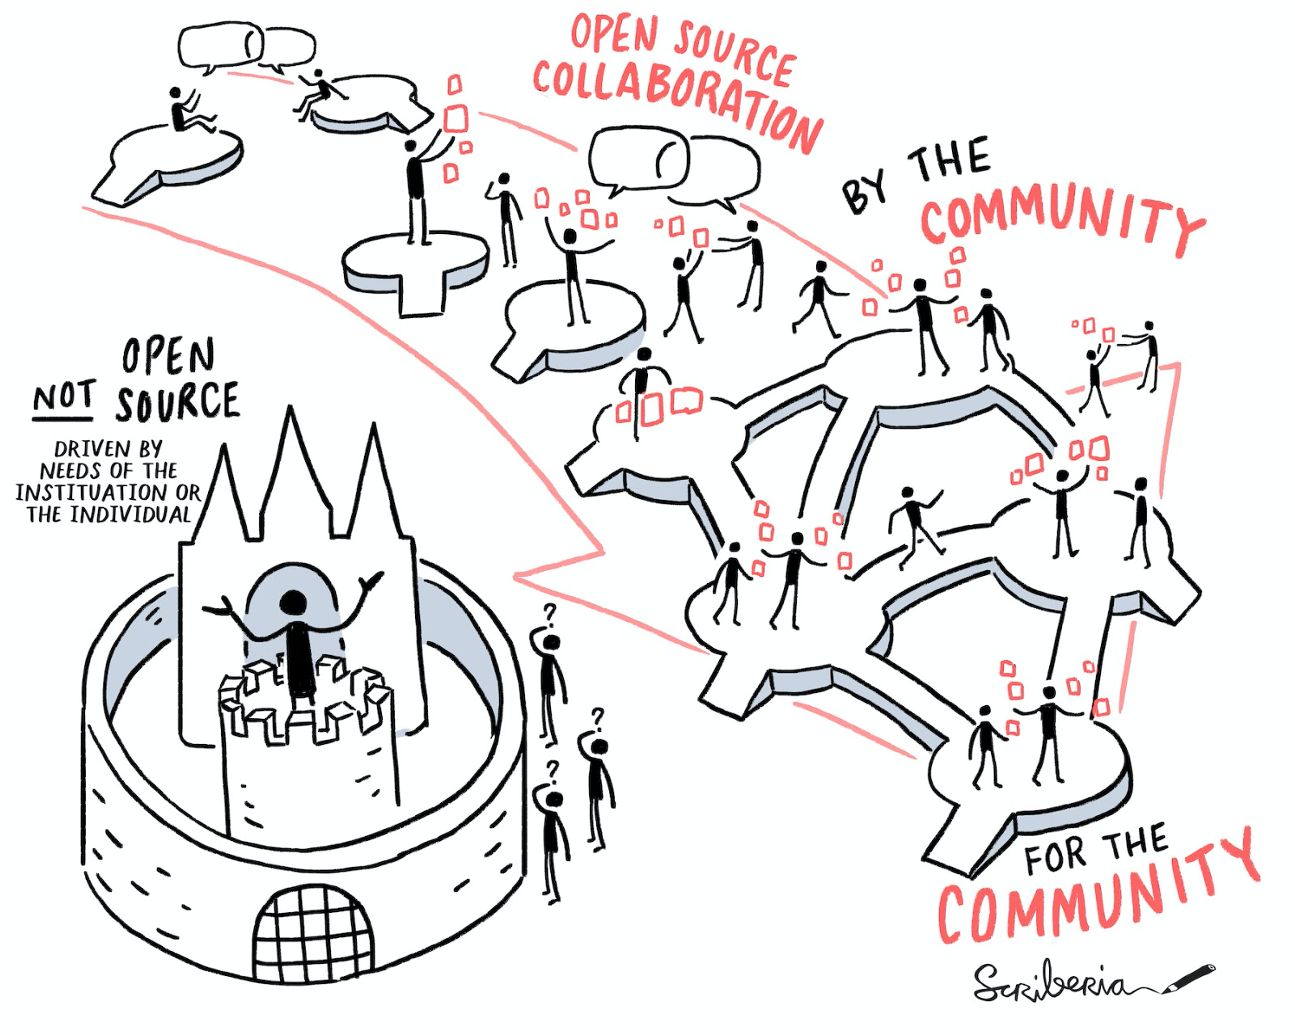 OPEN SOURCE
COLLABORATION
BY THE
COMMUNITY
OPEN
NOT SOURCE
DRIVEN BY
NEEDS OF THE
INSTITUATION OR
THE INDIVIDUAL
?
?
?
FOR THE
COMMUNITY
Scriberia